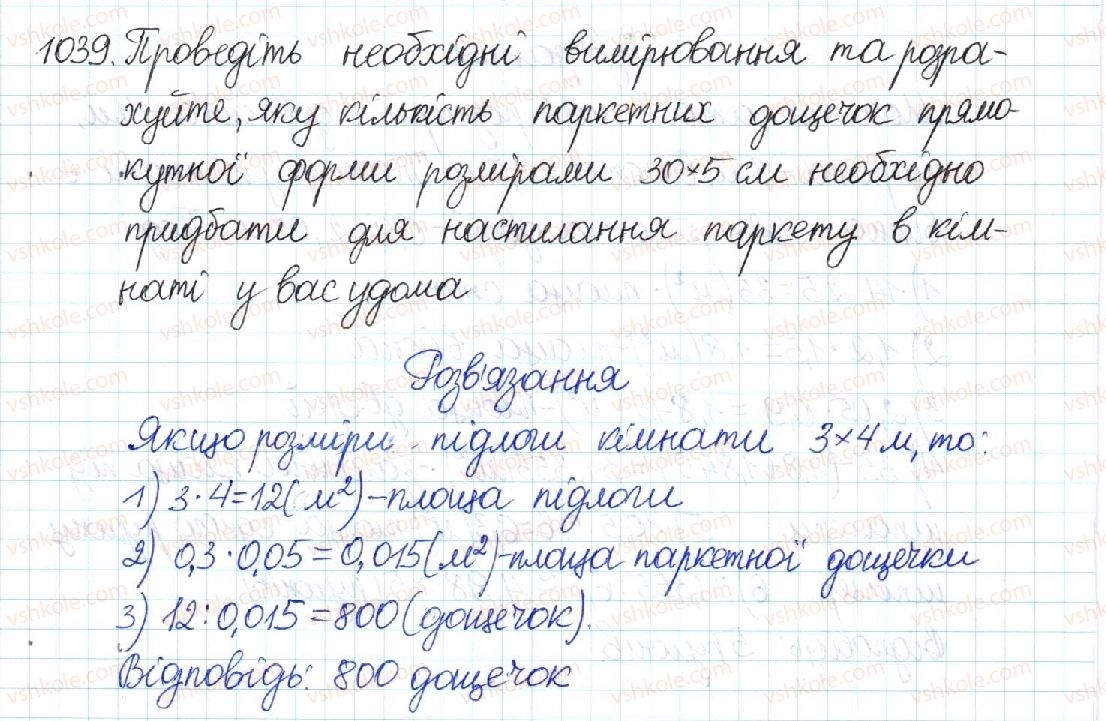 1039. Проведіть необхідні вимірювання та розра-
хуйте, яку кількість паркетних дощечок прямо-
кутної форми розмірами 30×5 см необхідно
придбати для настилання паркету в кім-
наті у вас удома
Розв'язання
Якщо розміри підлоги кімнати 3×4 м, то:
1) 3·4=12(м²)-площа підлоги
2) 0,3·0,05=0,015(м²)-площа паркетної дощечки
3) 12:0,015=800(дощечок).
Відповідь: 800 дощечок